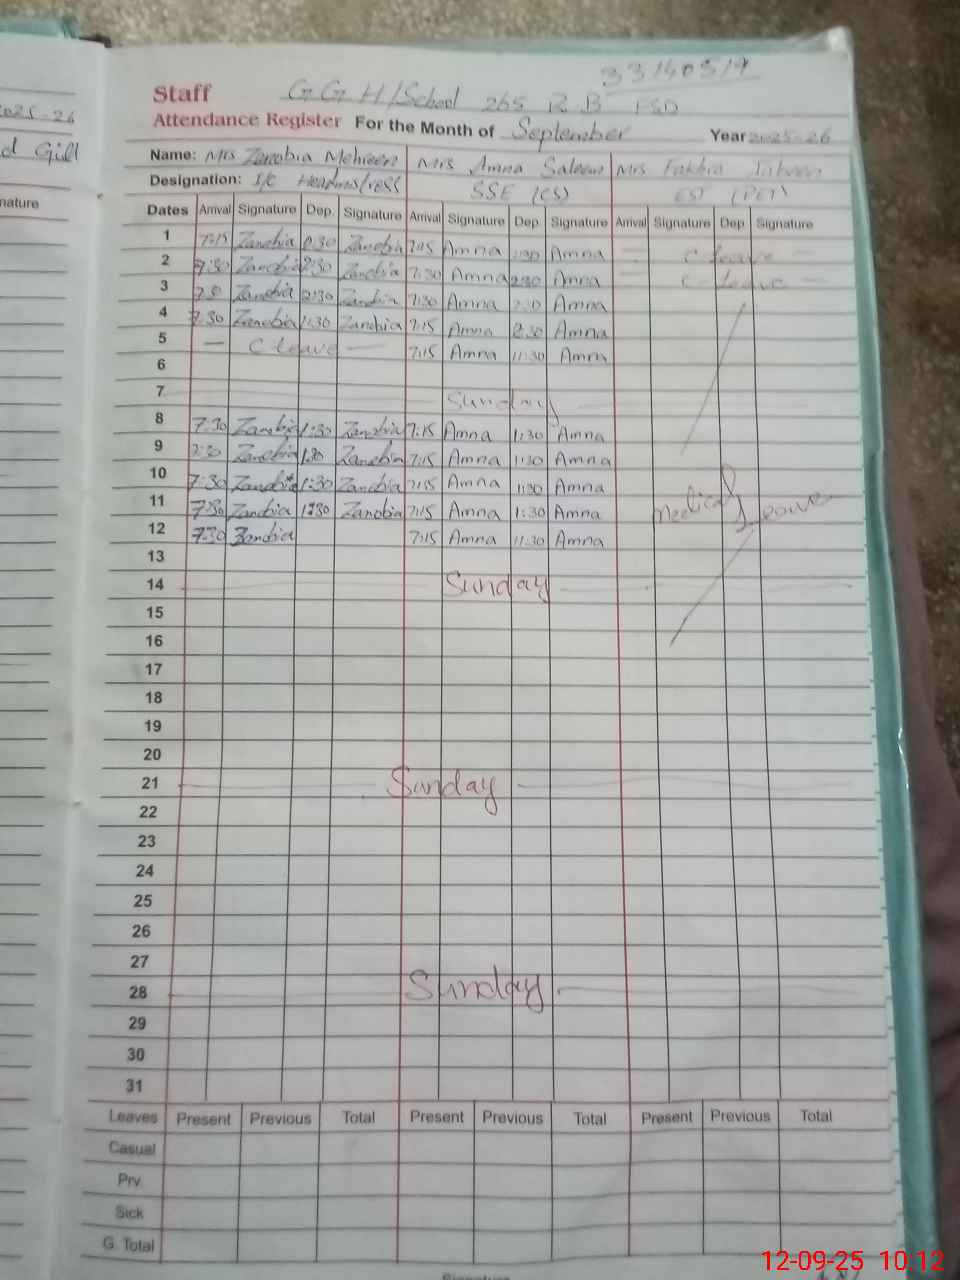 2025-26
d Gill
nature
33140519
Staff G G H/School 265 R.B FSD
Attendance Register For the Month of September Year 2025-26
Name: Mrs Zanobia Mehreen Mrs Amna Saleem Mrs Fakhra
Designation: I/c Headmistress SSE (CS) EST (PET)
Dates Arrival Signature Dep. Signature Arrival Signature Dep Signature Arrival Signature Dep Signature
1 7:15 Zanobia 1:30 Zanobia 7:15 Amna 1:30 Amna — C leave —
2 7:30 Zanobia 2:30 Zanobia 7:30 Amna 2:30 Amna — C-leave —
3 Zanobia 2:30 Zanobia 7:30 Amna 2:30 Amna
4 7:30 Zanobia 1:30 Zanobia 7:15 Amna 2:30 Amna
5 — C leave — 7:15 Amna 11:30 Amna
6
7 Sunday
8 7:30 Zanobia 1:30 Zanobia 7:15 Amna 1:30 Amna
9 7:30 Zanobia 1:30 Zanobia 7:15 Amna 1:30 Amna
10 7:30 Zanobia 1:30 Zanobia 7:15 Amna 1:30 Amna
11 7:30 Zanobia 1:30 Zanobia 7:15 Amna 1:30 Amna Medical Leave
12 7:30 Zanobia 7:15 Amna 11:30 Amna
13
14 Sunday
15
16
17
18
19
20
21 Sunday
22
23
24
25
26
27
28 Sunday
29
30
31
Leaves Present Previous Total Present Previous Total Present Previous Total
Casual
Prv.
Sick
G. Total
Signature
12-09-25 10.12